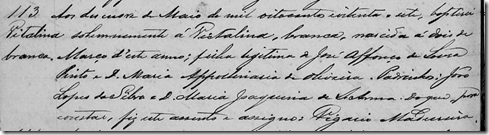 113 Aos descnove de Maio de mil oitocentos oitenta e sete, baptisei
Vitalina solemnemente á Vitalina, branca, nascida á dois de
branca. Março d'este anno; filha legitima de José Affonso de Souza
Pinto e D. Maria Appolinaria de Oliveira. Padrinhos: João
Lopes da Silva e D. Maria Joaquina de Do que, para
constar, fiz este assento e assigno: Vigario Madureira.